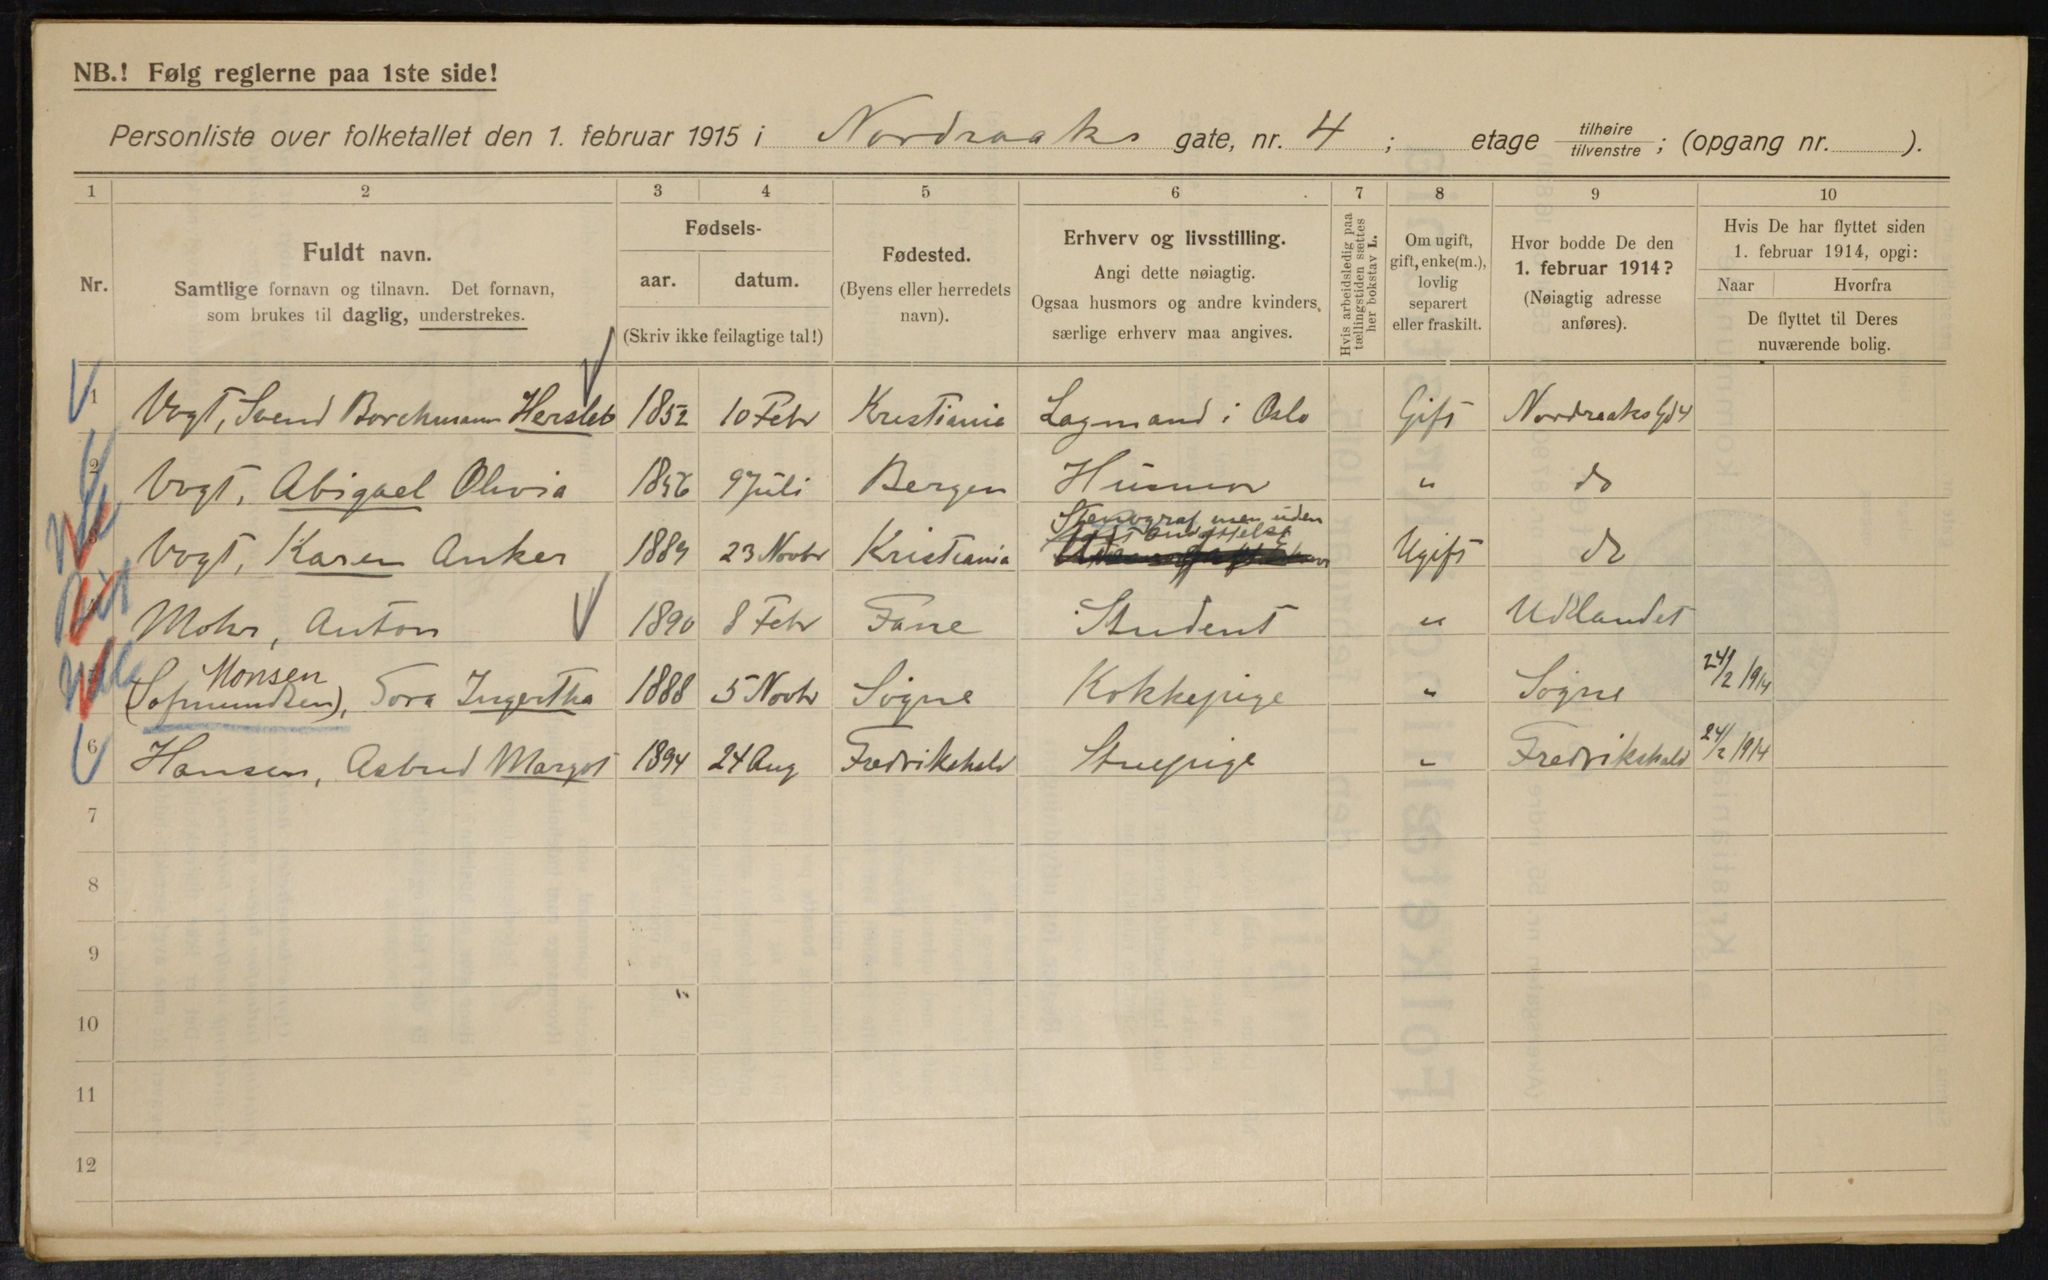 NB.! Følg reglerne paa 1ste side!
Personliste over folketallet den 1. februar 1915 i Nordraaks gate, nr. 4 ; etage tilhøire tilvenstre ; (opgang nr. ).
1 2 3 4 5 6 7 8 9 10
Nr.
Fuldt navn.
Samtlige fornavn og tilnavn. Det fornavn,
som brukes til daglig, understrekes.
Fødsels-
aar. datum.
(Skriv ikke feilagtige tal!)
Fødested.
(Byens eller herredets
navn).
Erhverv og livsstilling.
Angi dette nøiagtig.
Ogsaa husmors og andre kvinders
særlige erhverv maa angives.
Hvis arbeidsledig paa
tællingstiden sættes
her bokstav L.
Om ugift,
gift, enke(m.),
lovlig
separert
eller fraskilt.
Hvor bodde De den
1. februar 1914?
(Nøiagtig adresse
anføres).
Hvis De har flyttet siden
1. februar 1914, opgi:
Naar Hvorfra
De flyttet til Deres
nuværende bolig.
1 Vogt, Svend Borchmann Hersleb 1852 10 Febr Kristiania Lagmand i Oslo Gift Nordraaks Gd 4
2 Vogt, Abigael Olivia 1856 9 Juli Bergen Husmor " do
Stenograf men uden
3 Vogt, Karen Anker 1889 23 Novbr Kristiania Ugift do
4 Mohr, Anton 1890 8 Febr Fane Student " Udlandet
Monsen
(Sofmundsen), Tora Ingertha 1888 5 Novbr Søgne Kokkepige " Søgne 24/2 1914
6 Hansen, Astrid Margot 1894 24 Aug Fredrikshald Stuepige " Fredrikshald 24/2 1914
7
8
9
10
11
12